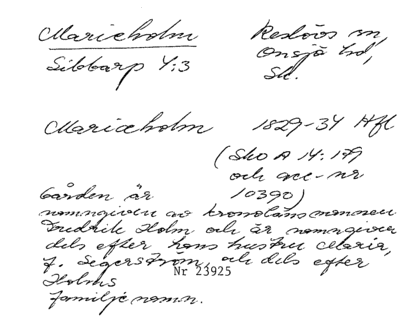 Marieholm
Reslövs sn,
Onsjö hd,
Sk.
Sibbarp 4:3
Marieholm 1829-34 Hfl
(Sko A 14:179
och acc-nr
10390)
Gården är
namngiven av kronolänsmannen
Fredrik Holm och är namngiven
dels efter hans hustru Maria,
f. Segerström, och dels efter
Nr 23925
Holms
familjenamn.